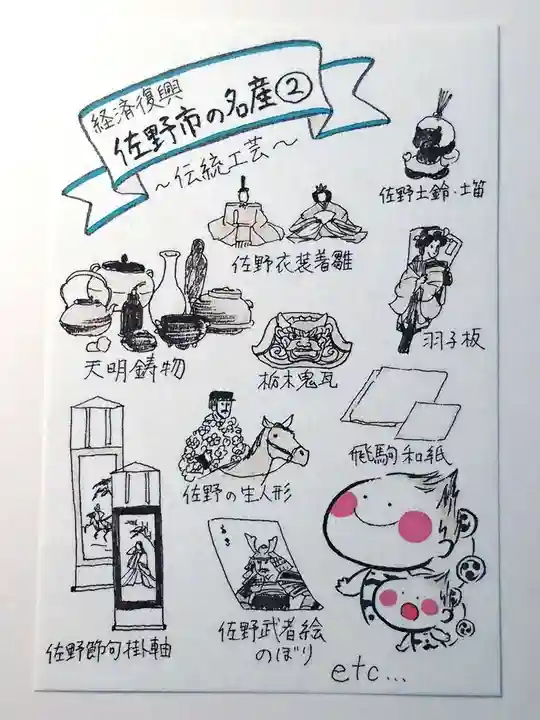 経済復興
佐野市の名産②
～伝統工芸～
佐野土鈴・土笛
佐野衣装着雛
羽子板
天明鋳物
栃木鬼瓦
飛駒和紙
佐野の生人形
佐野武者絵
のぼり
佐野節句掛軸
etc...